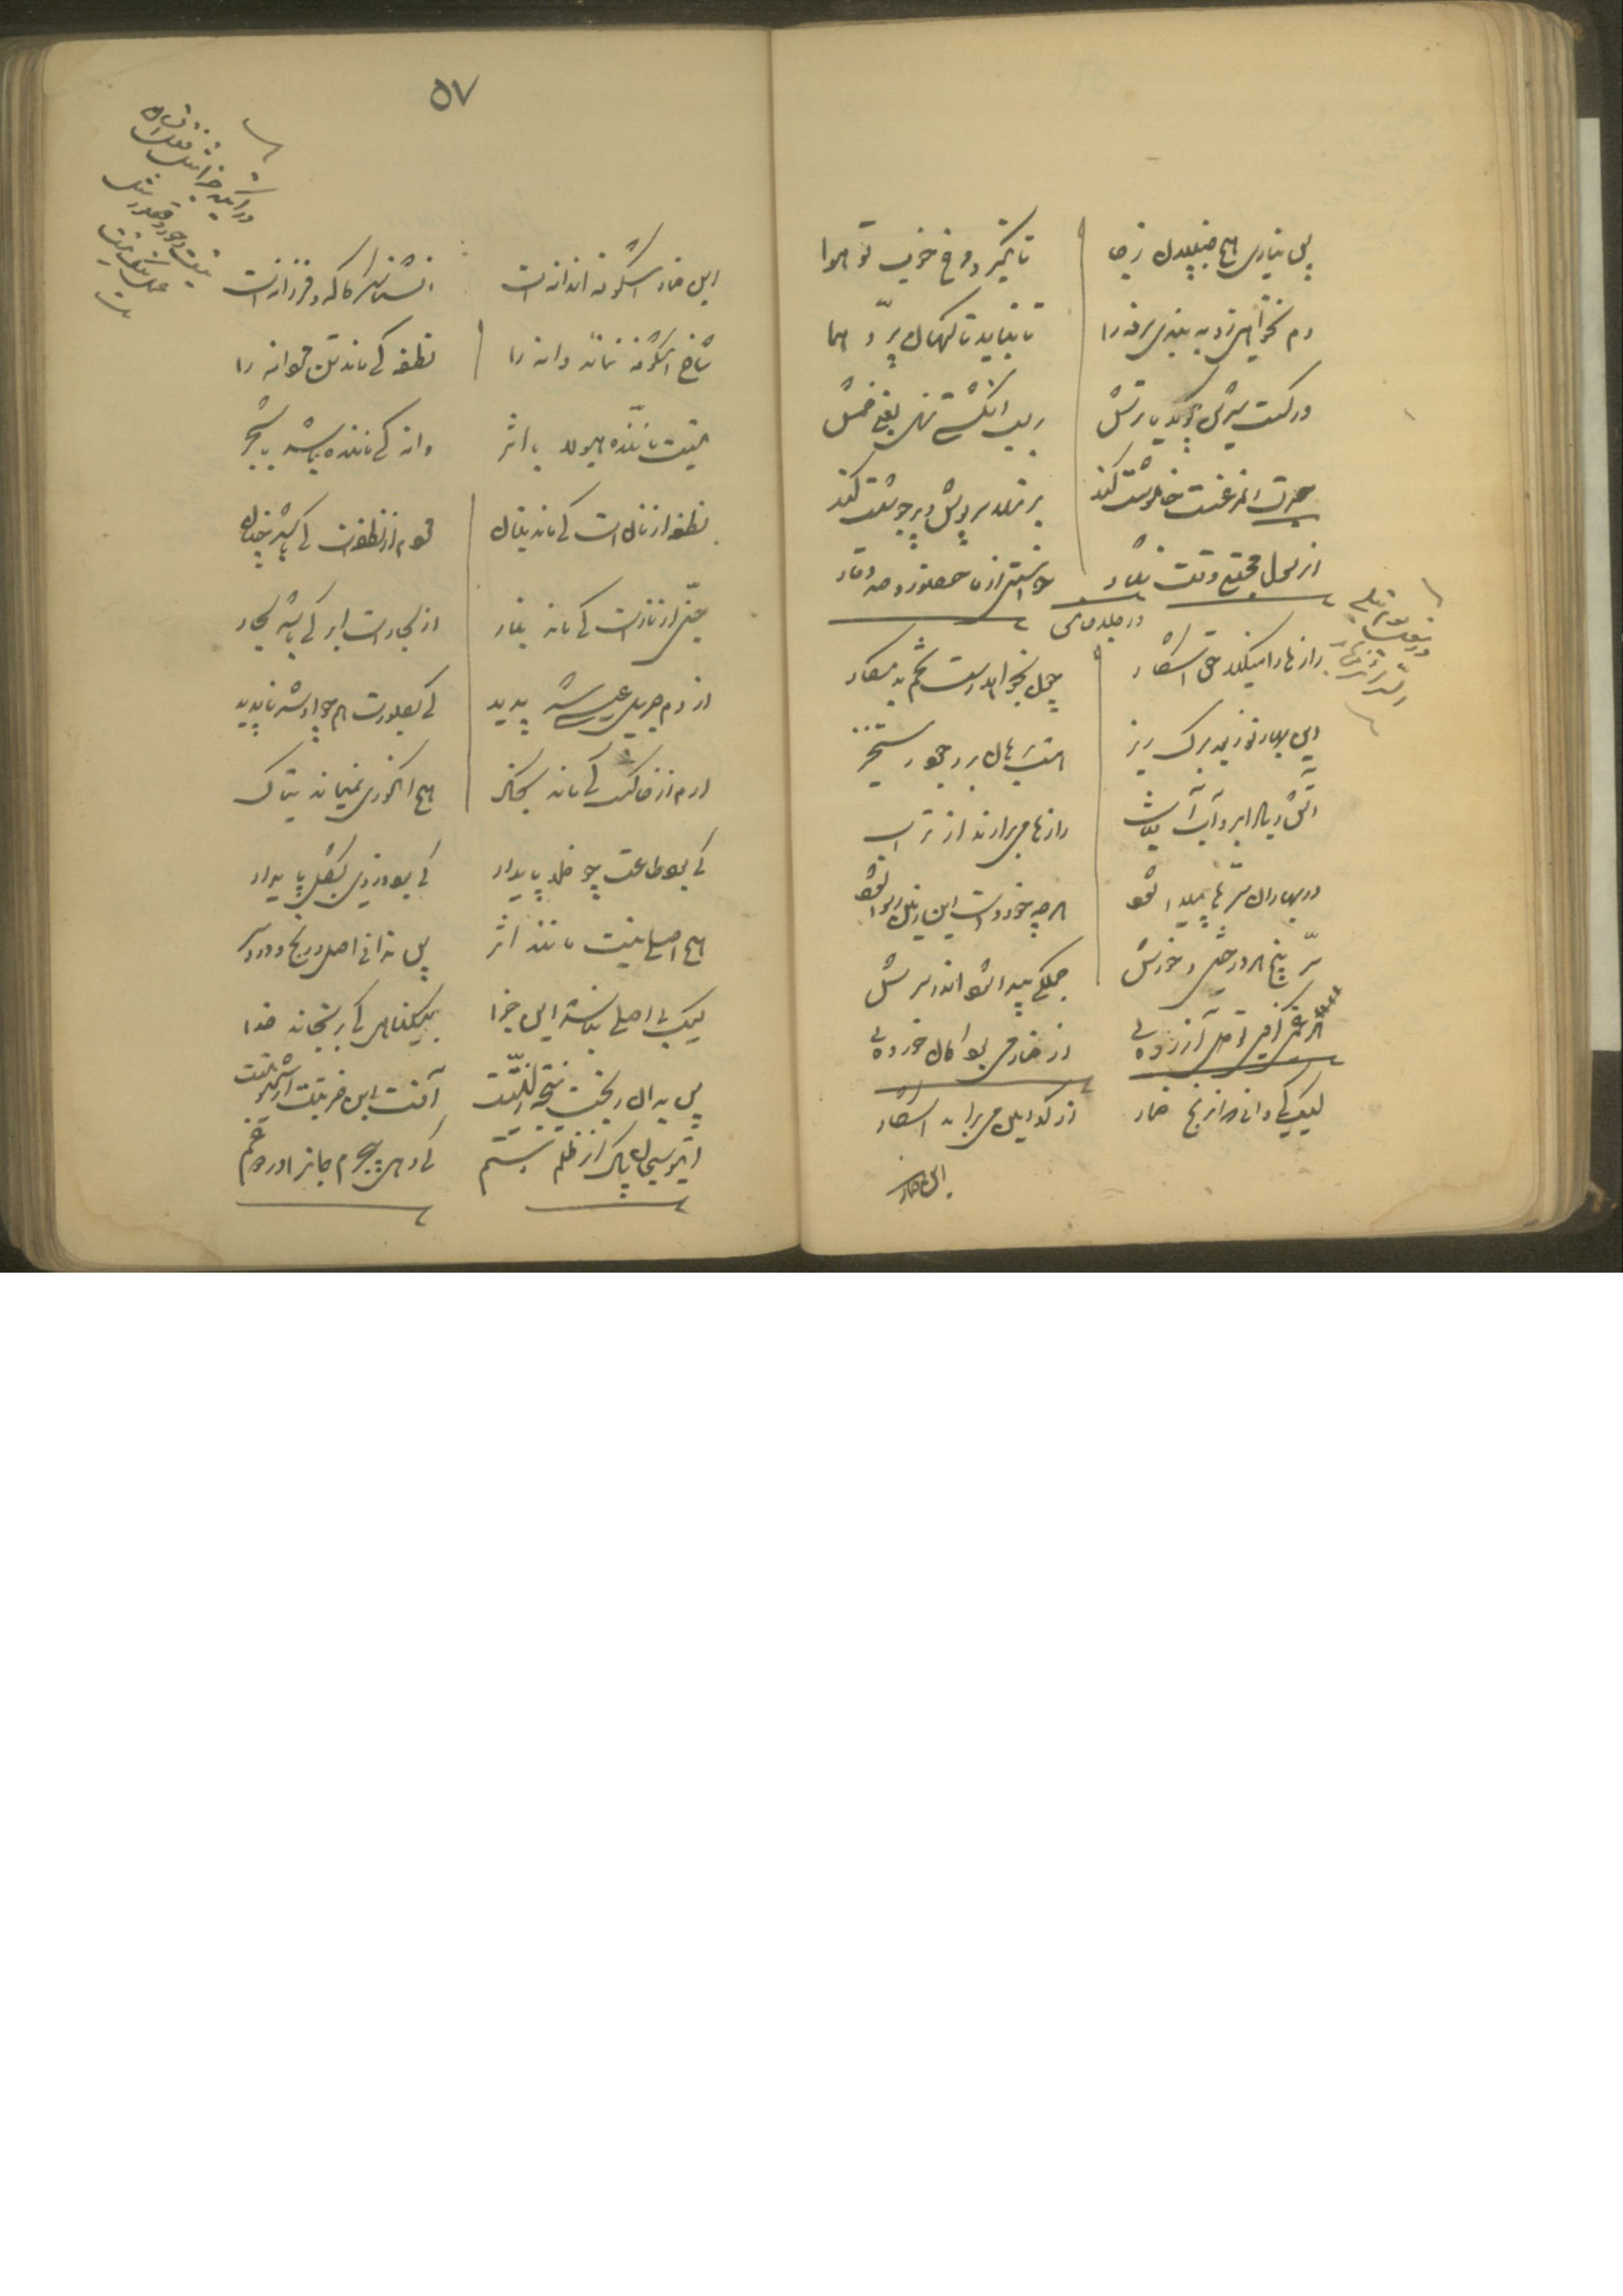 پس نیاری هیچ جنبیدن ز جا
تا نگیرد مرغ خوب تو هوا
دم نخواهی زد به بندی سرفه را
تا نباید ناگهان پرد هما
ور کست شیرین بگوید یا ترش
بر لب انگشتی نهی یعنی خمش
حیرت آن مرغست خاموشت کند
بر نهد سرپوش و پر جوشت کند
در جلد خامس
رازها را میکند حق آشکار
چون بخواهد رست تخم بد مکار
این بهار نو ز بعد برگ ریز
هست برهان بر وجود رستخیز
آتش و باد ابر و آب آفتاب
رازها می برارند از تراب
در بهاران سرها پیدا شود
هر چه خوردست این زمین رسوا شود
سر بیخ هر درختی و خورش
جملگی پیدا شود اندر سرش
هر غمی کز وی تو دل آزرده ئی
از خمار می بود کان خورده ئی
لیک کی دانی که آن رنج خمار
از کدامین می برآمد آشکار
این خمار
۵۷
این خمار اشکوفه آن دانه است
آن شناسد کاگه و فرزانه است
شاخ اشکوفه نماند دانه را
نطفه کی ماند تن مردانه را
نیست ماننده هیولا با اثر
دانه کی ماننده باشد با شجر
نطفه از نان است کی ماند بنان
مردم از نطفه است کی باشد چنان
جنی از نارست کی ماند بنار
از بخارست ابر کی باشد بخار
از دم جبریل عیسی شد پدید
کی بصورت همچو او شد ناپدید
آدم از خاکست کی ماند بخاک
هیچ انگوری نمیماند بتاک
کی بود طاعت چو خلد پایدار
کی بود دزدی بشکل پایدار
هیچ اصلی نیست مانند اثر
پس ندانی اصل رنج و درد سر
لیک بی اصلی نباشد این جزا
بیگناهی کی برنجاند خدا
پس بدان رنجت نتیجه زلتیست
آفت این ضربتت از شهوتیست
ای تو سبحان پاک از ظلم و ستم
کی دهی بیجرم جان را درد و غم